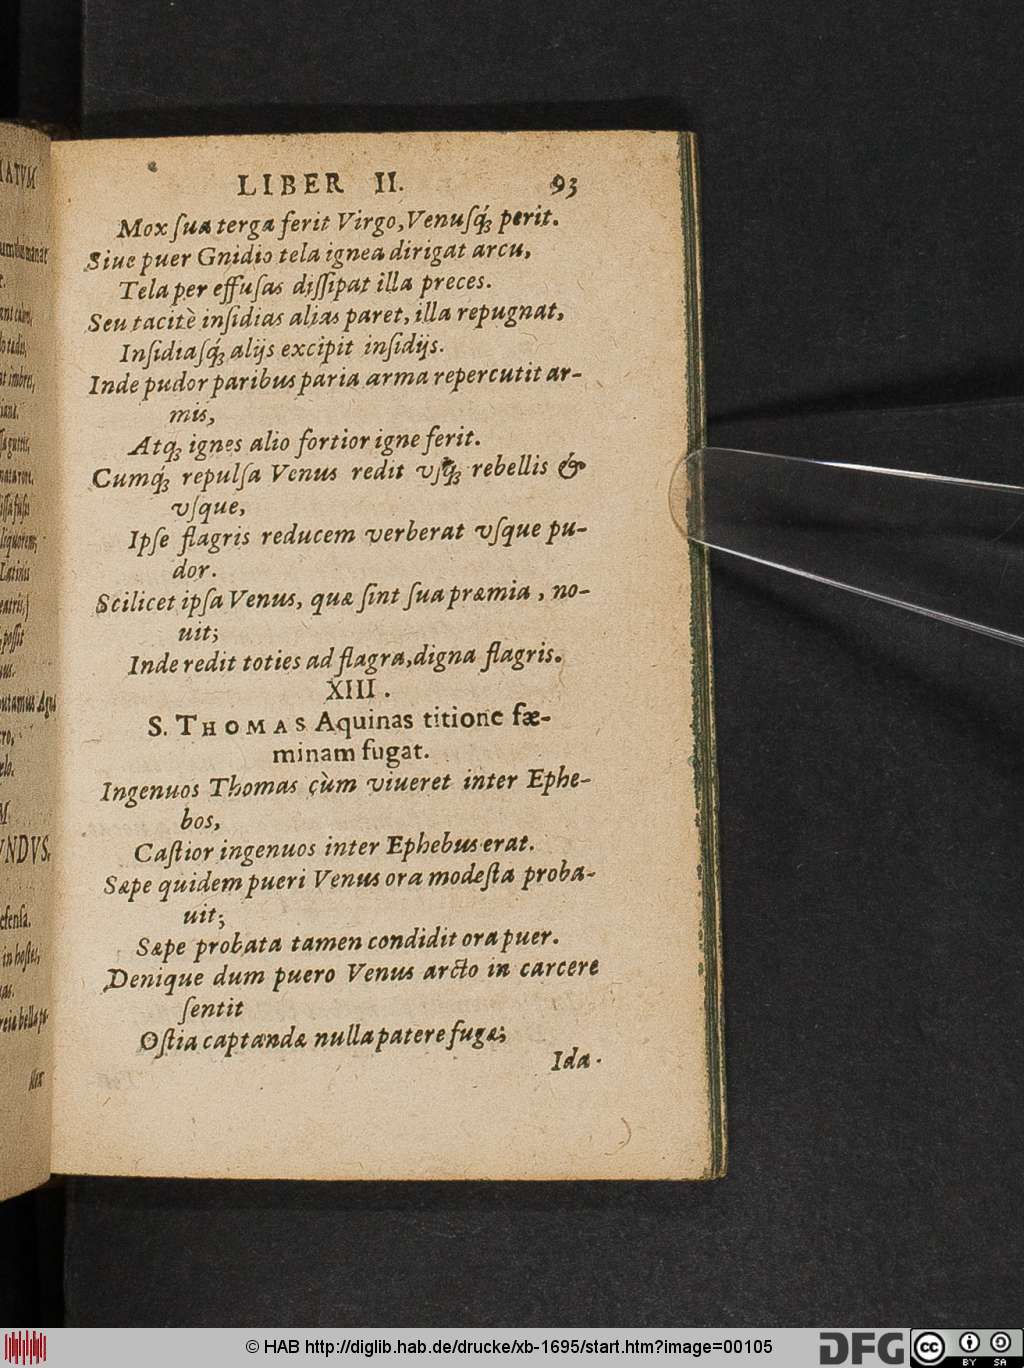 LIBER II. 93
Mox ſua terga ferit Virgo, Venuſq́; perit.
Siue puer Gnidio tela ignea dirigat arcu,
Tela per effuſas diſſipat illa preces.
Seu tacitè inſidias alias paret, illa repugnat,
Inſidiaſq́; alijs excipit inſidijs.
Inde pudor paribus paria arma repercutit ar-
mis,
Atq; ignes alio fortior igne ferit.
Cumq́; repulſa Venus redit vſq́; rebellis &
vſque,
Ipſe flagris reducem verberat vſque pu-
dor.
Scilicet ipſa Venus, quæ ſint ſua præmia, no-
uit;
Inde redit toties ad flagra, digna flagris.
XIII.
S. THOMAS Aquinas titione fæ-
minam fugat.
Ingenuos Thomas cùm viueret inter Ephe-
bos,
Caſtior ingenuos inter Ephebus erat.
Sæpe quidem pueri Venus ora modeſta proba-
uit;
Sæpe probata tamen condidit ora puer.
Denique dum puero Venus arcto in carcere
ſentit
Oſtia captandæ nulla patere fugæ;
Ida.
© HAB http://diglib.hab.de/drucke/xb-1695/start.htm?image=00105
DFG
cc BY SA